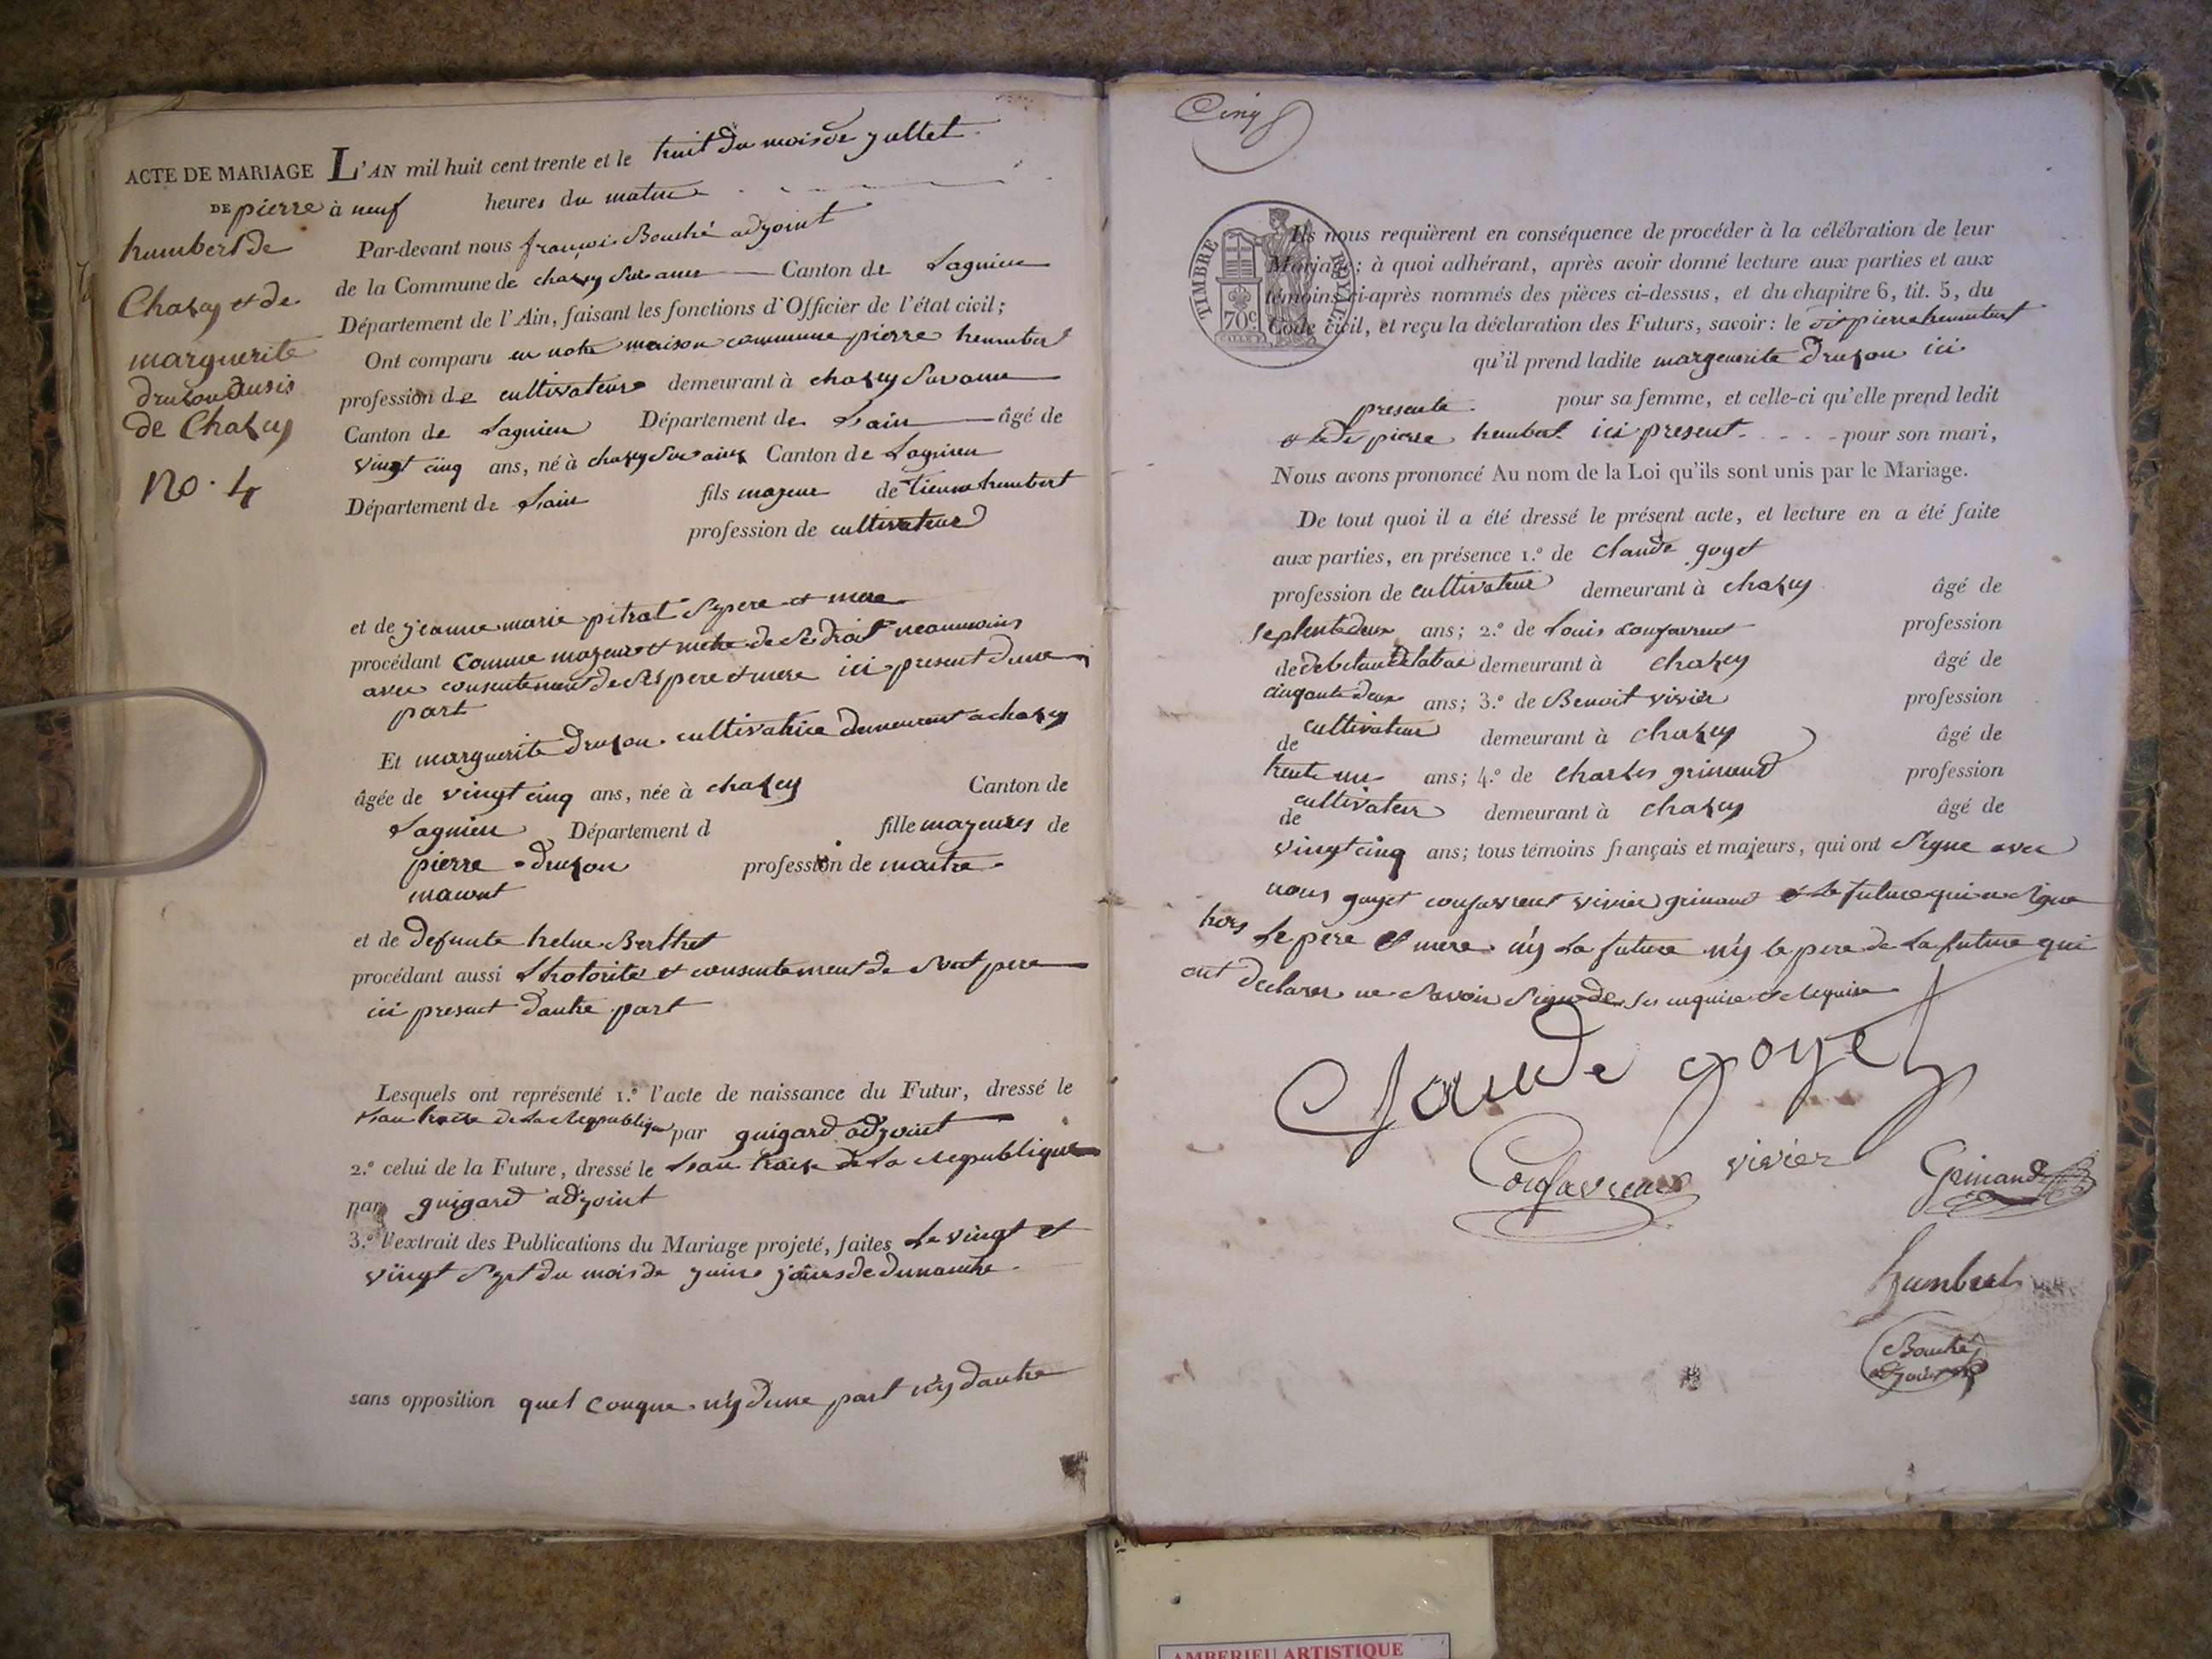 ACTE DE MARIAGE
DE pierre
humbert de
Chazey et de
marguerite
druzon ausis
de Chazey
No. 4
L'AN mil huit cent trente et le huit du mois de jullet
à neuf heures du matin
Par-devant nous françois Bouché adjoint
de la Commune de chazey sur ains Canton de Lagnieu
Département de l'Ain, faisant les fonctions d'Officier de l'état civil;
Ont comparu en notre maison commune pierre humbert
profession de cultivateur demeurant à chazey sur ains
Canton de Lagnieu Département de Lain âgé de
vingt cinq ans, né à chazey sur ains Canton de Lagnieu
Département de Lain fils majeur de humbert
profession de cultivateur
et de jeanne marie pitrat ses pere et mere
procédant comme majeur et de droit neaumoins
avec consentement de ses pere et mere ici present dune
part
Et marguerite druzon cultivatrice demeurent a chazey
âgée de vingt cinq ans, née à chazey Canton de
Lagnieu Département d fille majeurs de
pierre druzon profession de maitre
macont
et de defunte helne Berthet
procédant aussi Lhotorite et consentement de pere
ici present dautre part
Lesquels ont représenté 1.° l'acte de naissance du Futur, dressé le
Lan treize de La Republique par guigard adjoint
2.° celui de la Future, dressé le Lan treize de La Republique
par guigard adjoint
3.° l'extrait des Publications du Mariage projeté, faites Le vingt et
vingt sept du mois de juin jours de dimanche
sans opposition quel conque n'y dune part n'y dautre
Cinq
TIMBRE ROYAL
70c
Ils nous requièrent en conséquence de procéder à la célébration de leur
Mariage; à quoi adhérant, après avoir donné lecture aux parties et aux
témoins ci-après nommés des pièces ci-dessus, et du chapitre 6, tit. 5, du
Code civil, et reçu la déclaration des Futurs, savoir: le dit pierre humbert
qu'il prend ladite margeurite druzon ici
presente pour sa femme, et celle-ci qu'elle prend ledit
pierre humbert ici present pour son mari,
Nous avons prononcé Au nom de la Loi qu'ils sont unis par le Mariage.
De tout quoi il a été dressé le présent acte, et lecture en a été faite
aux parties, en présence 1.° de claude goyet
profession de cultivateur demeurant à chazey âgé de
septente deux ans; 2.° de Louis confavreux profession
de debitant de tabac demeurant à chazey âgé de
cinqante deux ans; 3.° de Benoit vivier profession
de cultivateur demeurant à chazey âgé de
trente un ans; 4.° de charles grinand profession
de cultivateur demeurant à chazey âgé de
vingt cinq ans; tous témoins français et majeurs, qui ont signe avec
nous goyet confavreux vivier grinand et Le future qui a signe
hors Le père et mere n'y La future n'y le pere de La future qui
ont declarer ne savoir signe de ce enquis et requise
Claude goyet
Confavreux vivier Grinand
humbert
Bouché
adjoint
AMBERIEU ARTISTIQUE